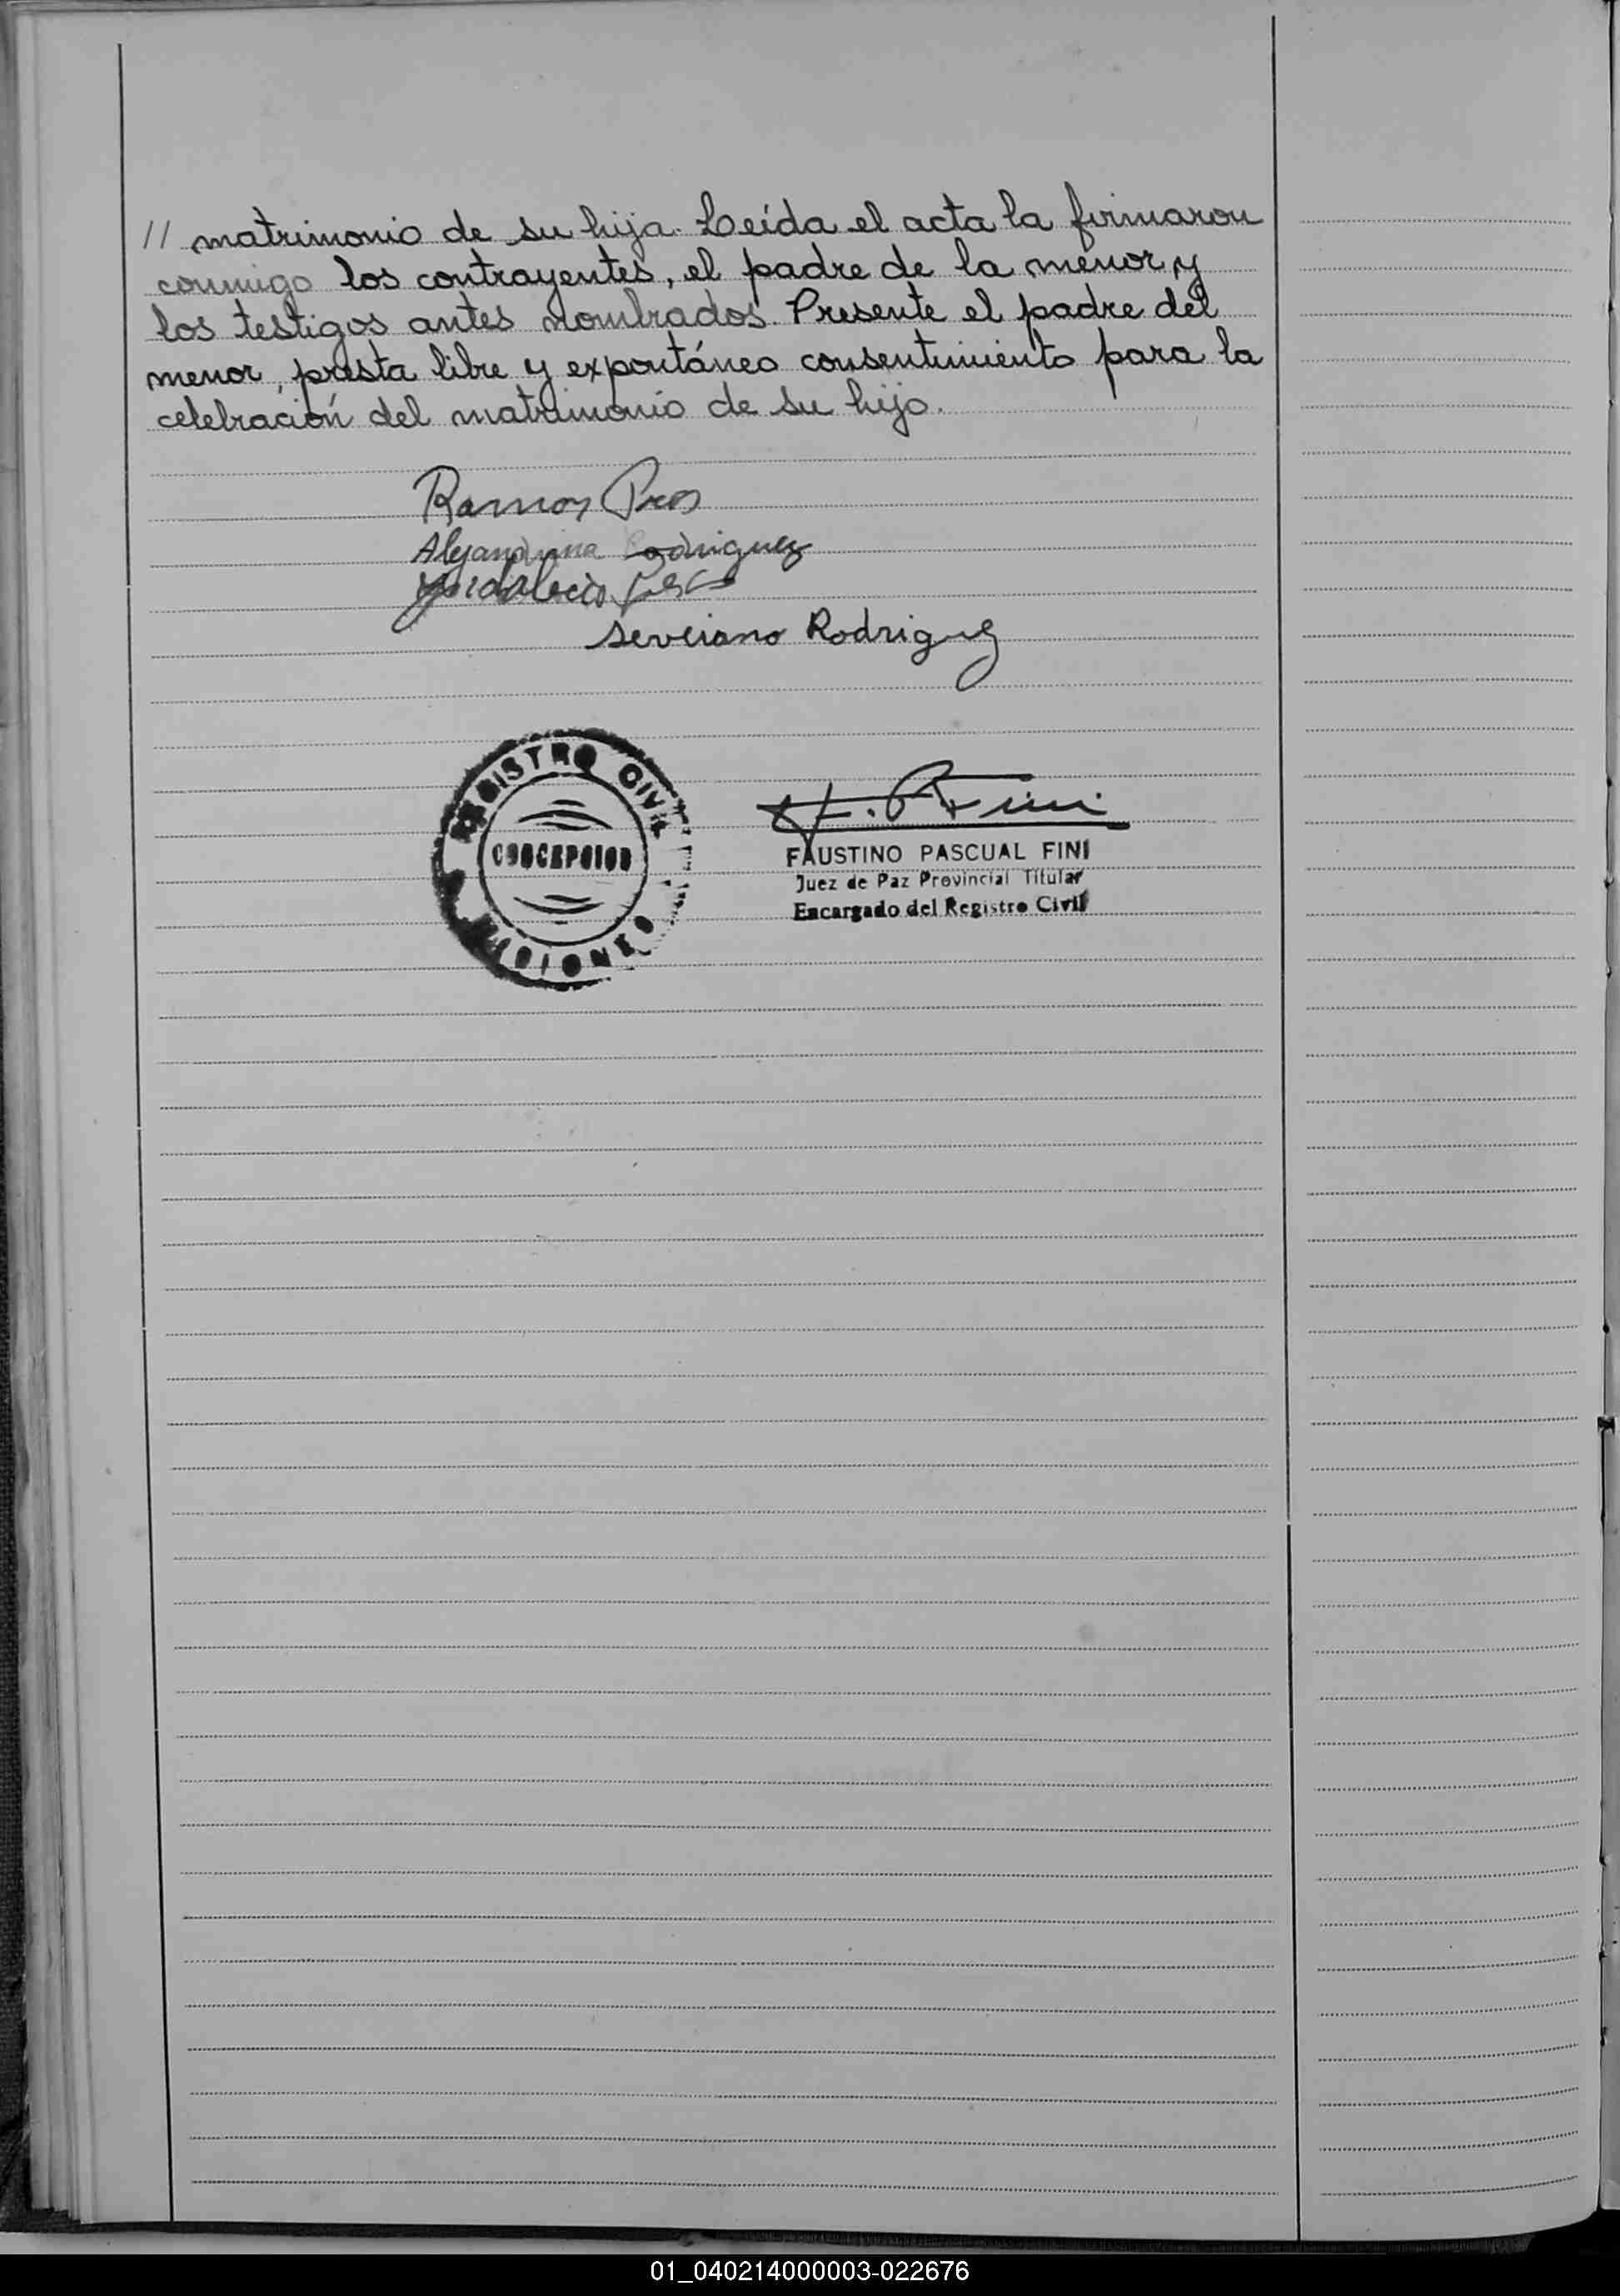 // matrimonio de su hija. Leída el acta la firmaron
conmigo los contrayentes, el padre de la menor y
los testigos antes nombrados. Presente el padre del
menor, presta libre y expontáneo consentimiento para la
celebración del matrimonio de su hijo.
Ramon
Alejandrina Rodriguez
Serviano Rodriguez
REGISTRO CIVIL
CONCEPCION
MISIONES
F. P. Fini
FAUSTINO PASCUAL FINI
Juez de Paz Provincial Titular
Encargado del Registro Civil
01_040214000003-022676